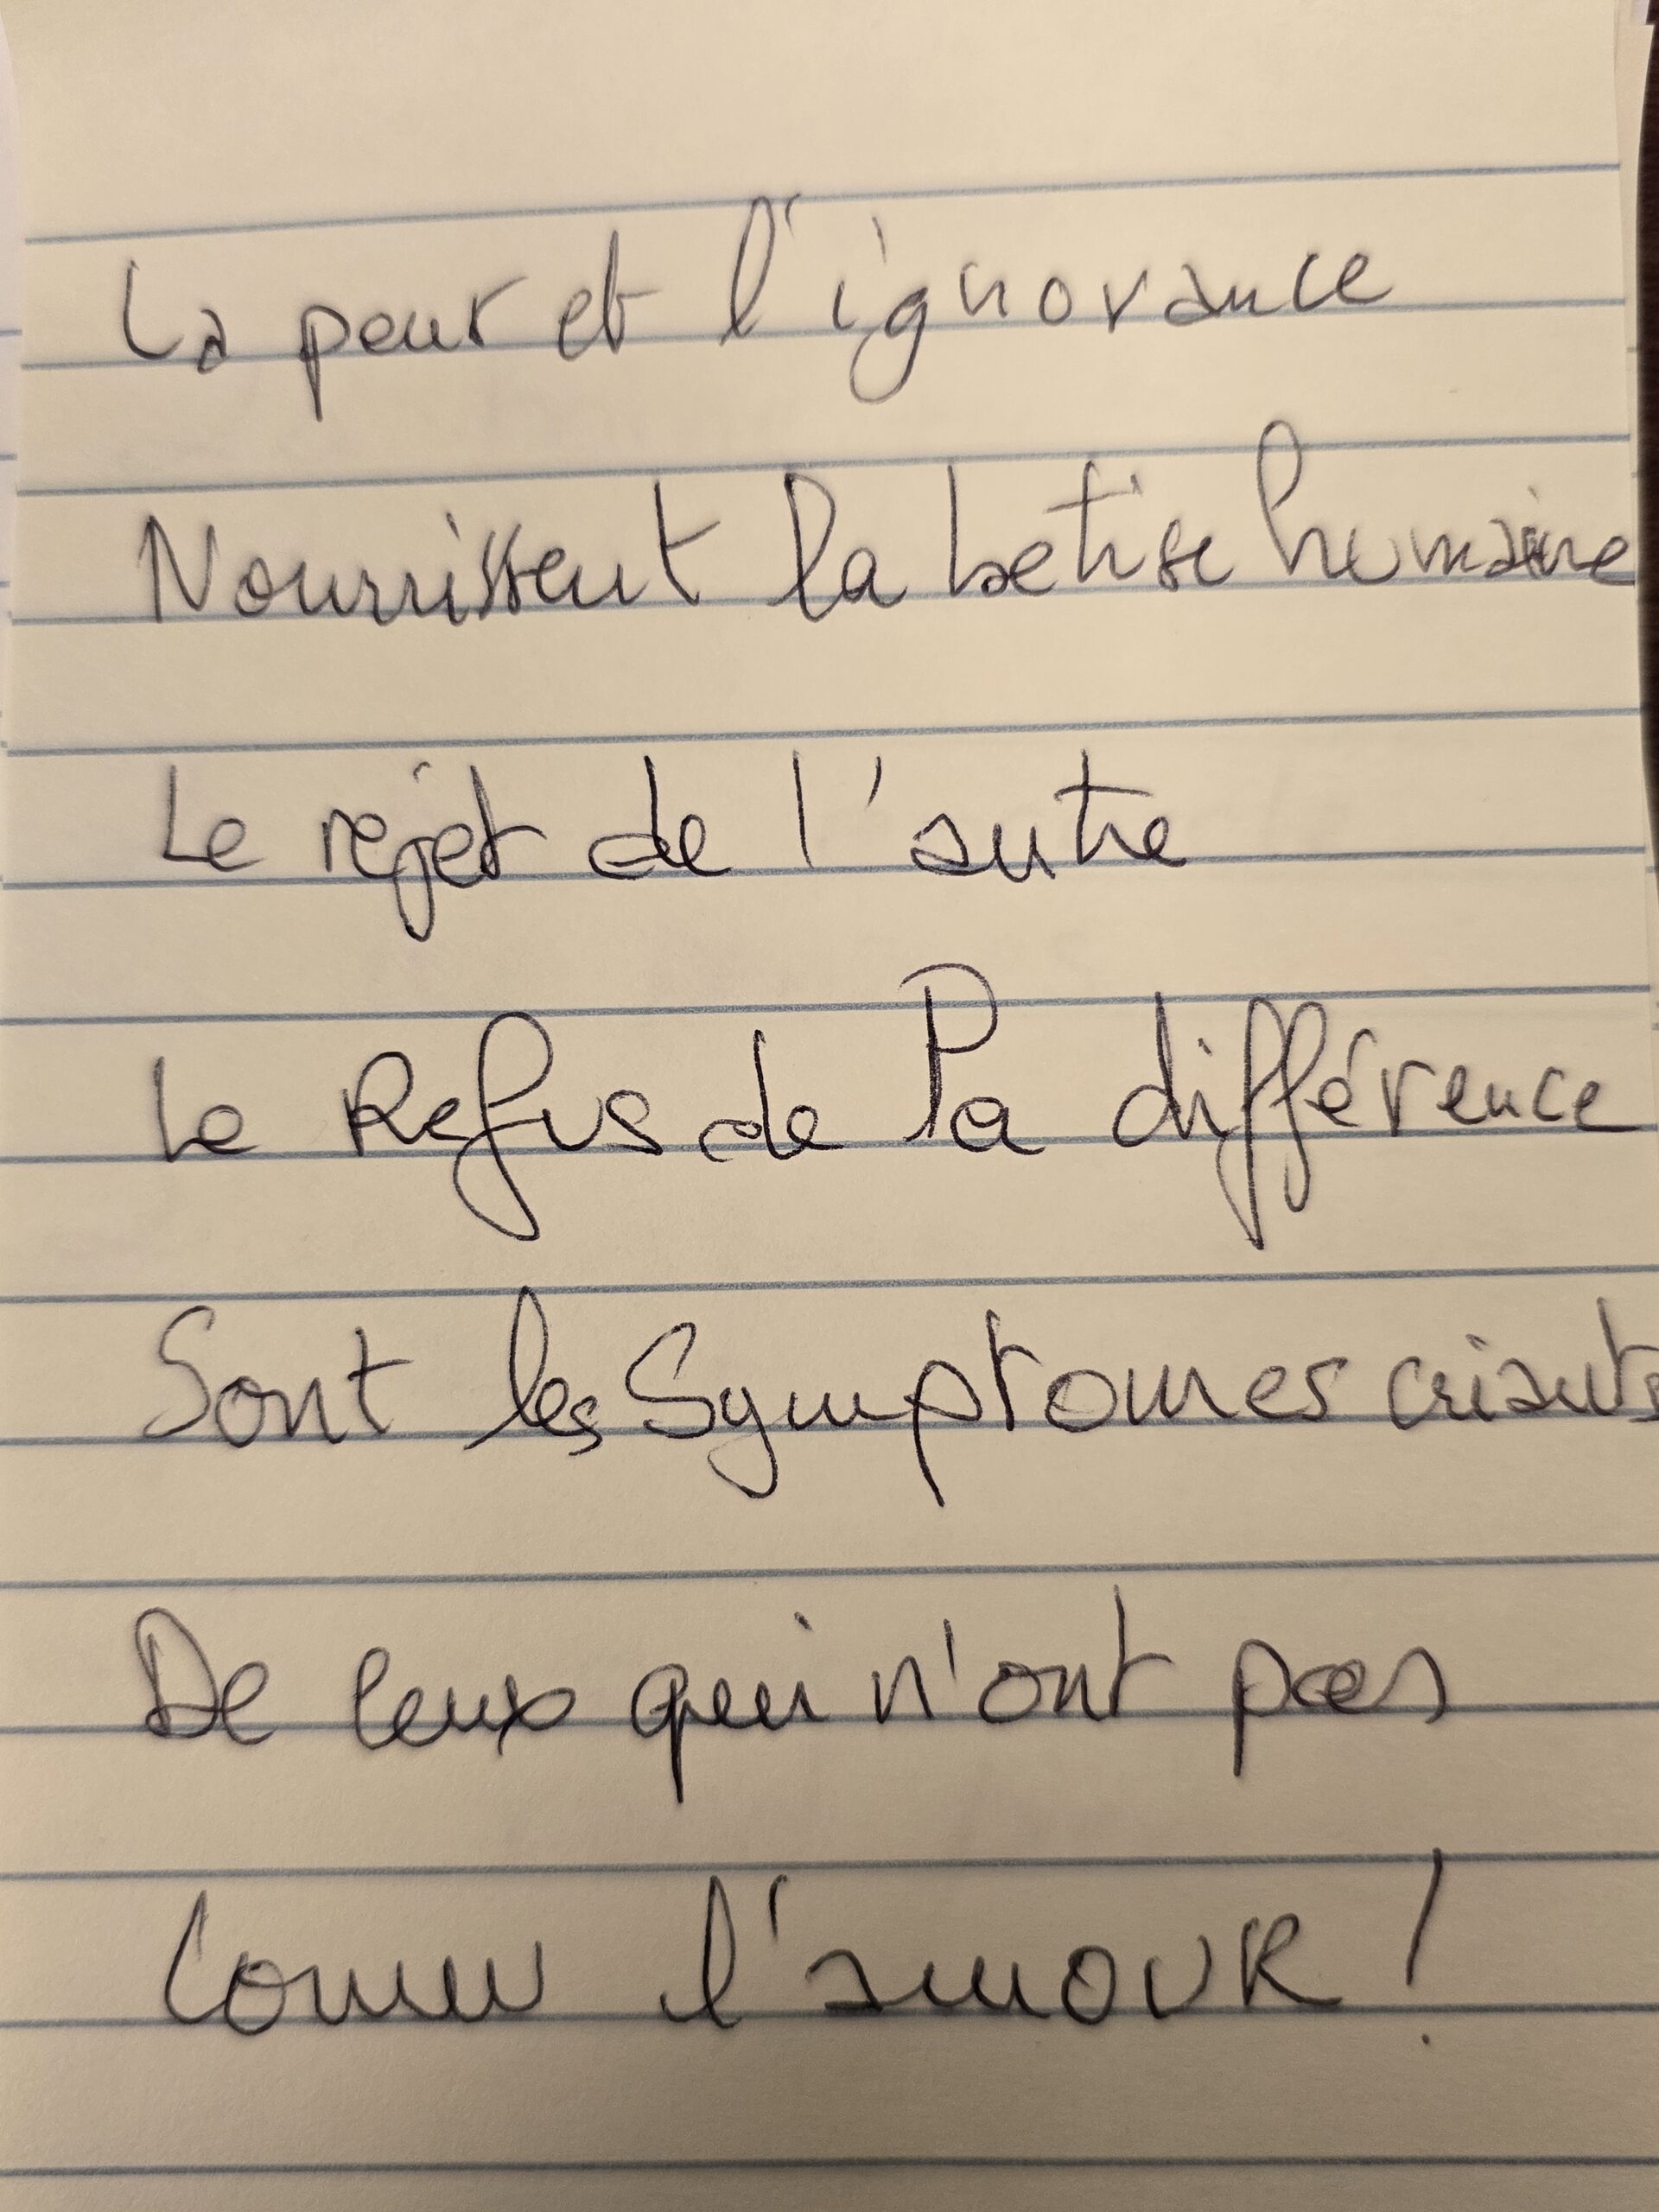 La peur et l'ignorance
Nourrissent la betise humaine
Le rejet de l'autre
Le Refus de la différence
Sont les Symptomes criants
De Ceux qui n'ont pas
Connu l'amour !